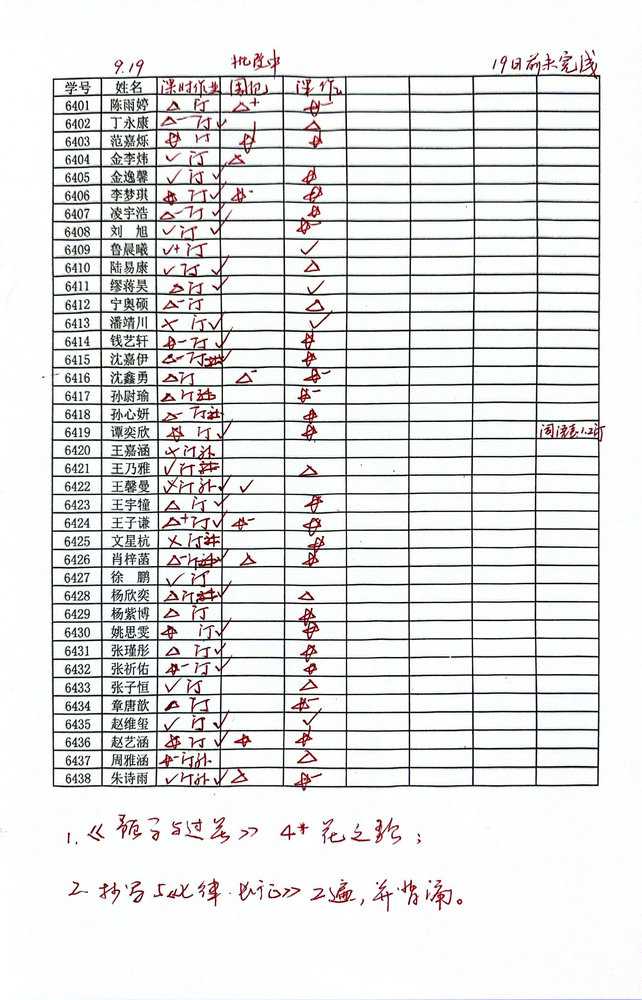 9.19 批改中 19日前未完成
学号 姓名 课时作业 课作
6401 陈雨婷 △ 订 △+
6402 丁永康 △- 订 ✓ △
6403 范嘉烁 ☆ 订 ☆ ☆
6404 金李炜 ✓ 订 △
6405 金逸馨 ✓ 订 ✓ ☆
6406 李梦琪 ☆ 订 ✓ ☆- ☆
6407 凌宇浩 △- 订 ✓ ☆
6408 刘旭 ✓ 订 ✓ ☆-
6409 鲁晨曦 ✓+ 订 ✓
6410 陆易康 ✓ 订 ✓ △
6411 缪蒋昊 △ 订 ✓ ✓
6412 宁奥硕 △- 订 △
6413 潘靖川 × 订 ✓ ✓
6414 钱艺轩 ☆- 订 ✓ ☆
6415 沈嘉伊 △- 订 ✓ ☆
6416 沈鑫勇 △ 订 △- ☆-
6417 孙尉瑜 △ 订补 ☆-
6418 孙心妍 △- 订补 ☆
6419 谭奕欣 ☆ 订 ✓ ☆
6420 王嘉涵 × 订补
6421 王乃雅 ✓ 订补 △
6422 王馨曼 × 订补 ✓ ✓
6423 王宇犝 △ 订 ✓ ☆
6424 王子谦 △+ 订 ✓ ☆- ☆
6425 文星杭 × 订补 ☆
6426 肖梓菡 △- 订补 ✓ △ ☆
6427 徐鹏 ✓ 订
6428 杨欣奕 △ 订补 ✓ △
6429 杨紫博 △ 订 ☆
6430 姚思雯 ☆ 订 ✓ ☆
6431 张瑾彤 △ 订 ✓ ☆
6432 张祈佑 ☆- 订 ✓ ☆
6433 张子恒 ✓ 订 △
6434 章唐歆 △ 订 ☆-
6435 赵维玺 ✓ 订 ✓ ✓
6436 赵艺涵 ☆ 订 ✓ ☆ ☆
6437 周雅涵 ☆- 订补 △
6438 朱诗雨 ✓ 订补 ✓ △ ☆-
4* 花之歌；
2. 抄写《七律·长征》2遍，并背诵。